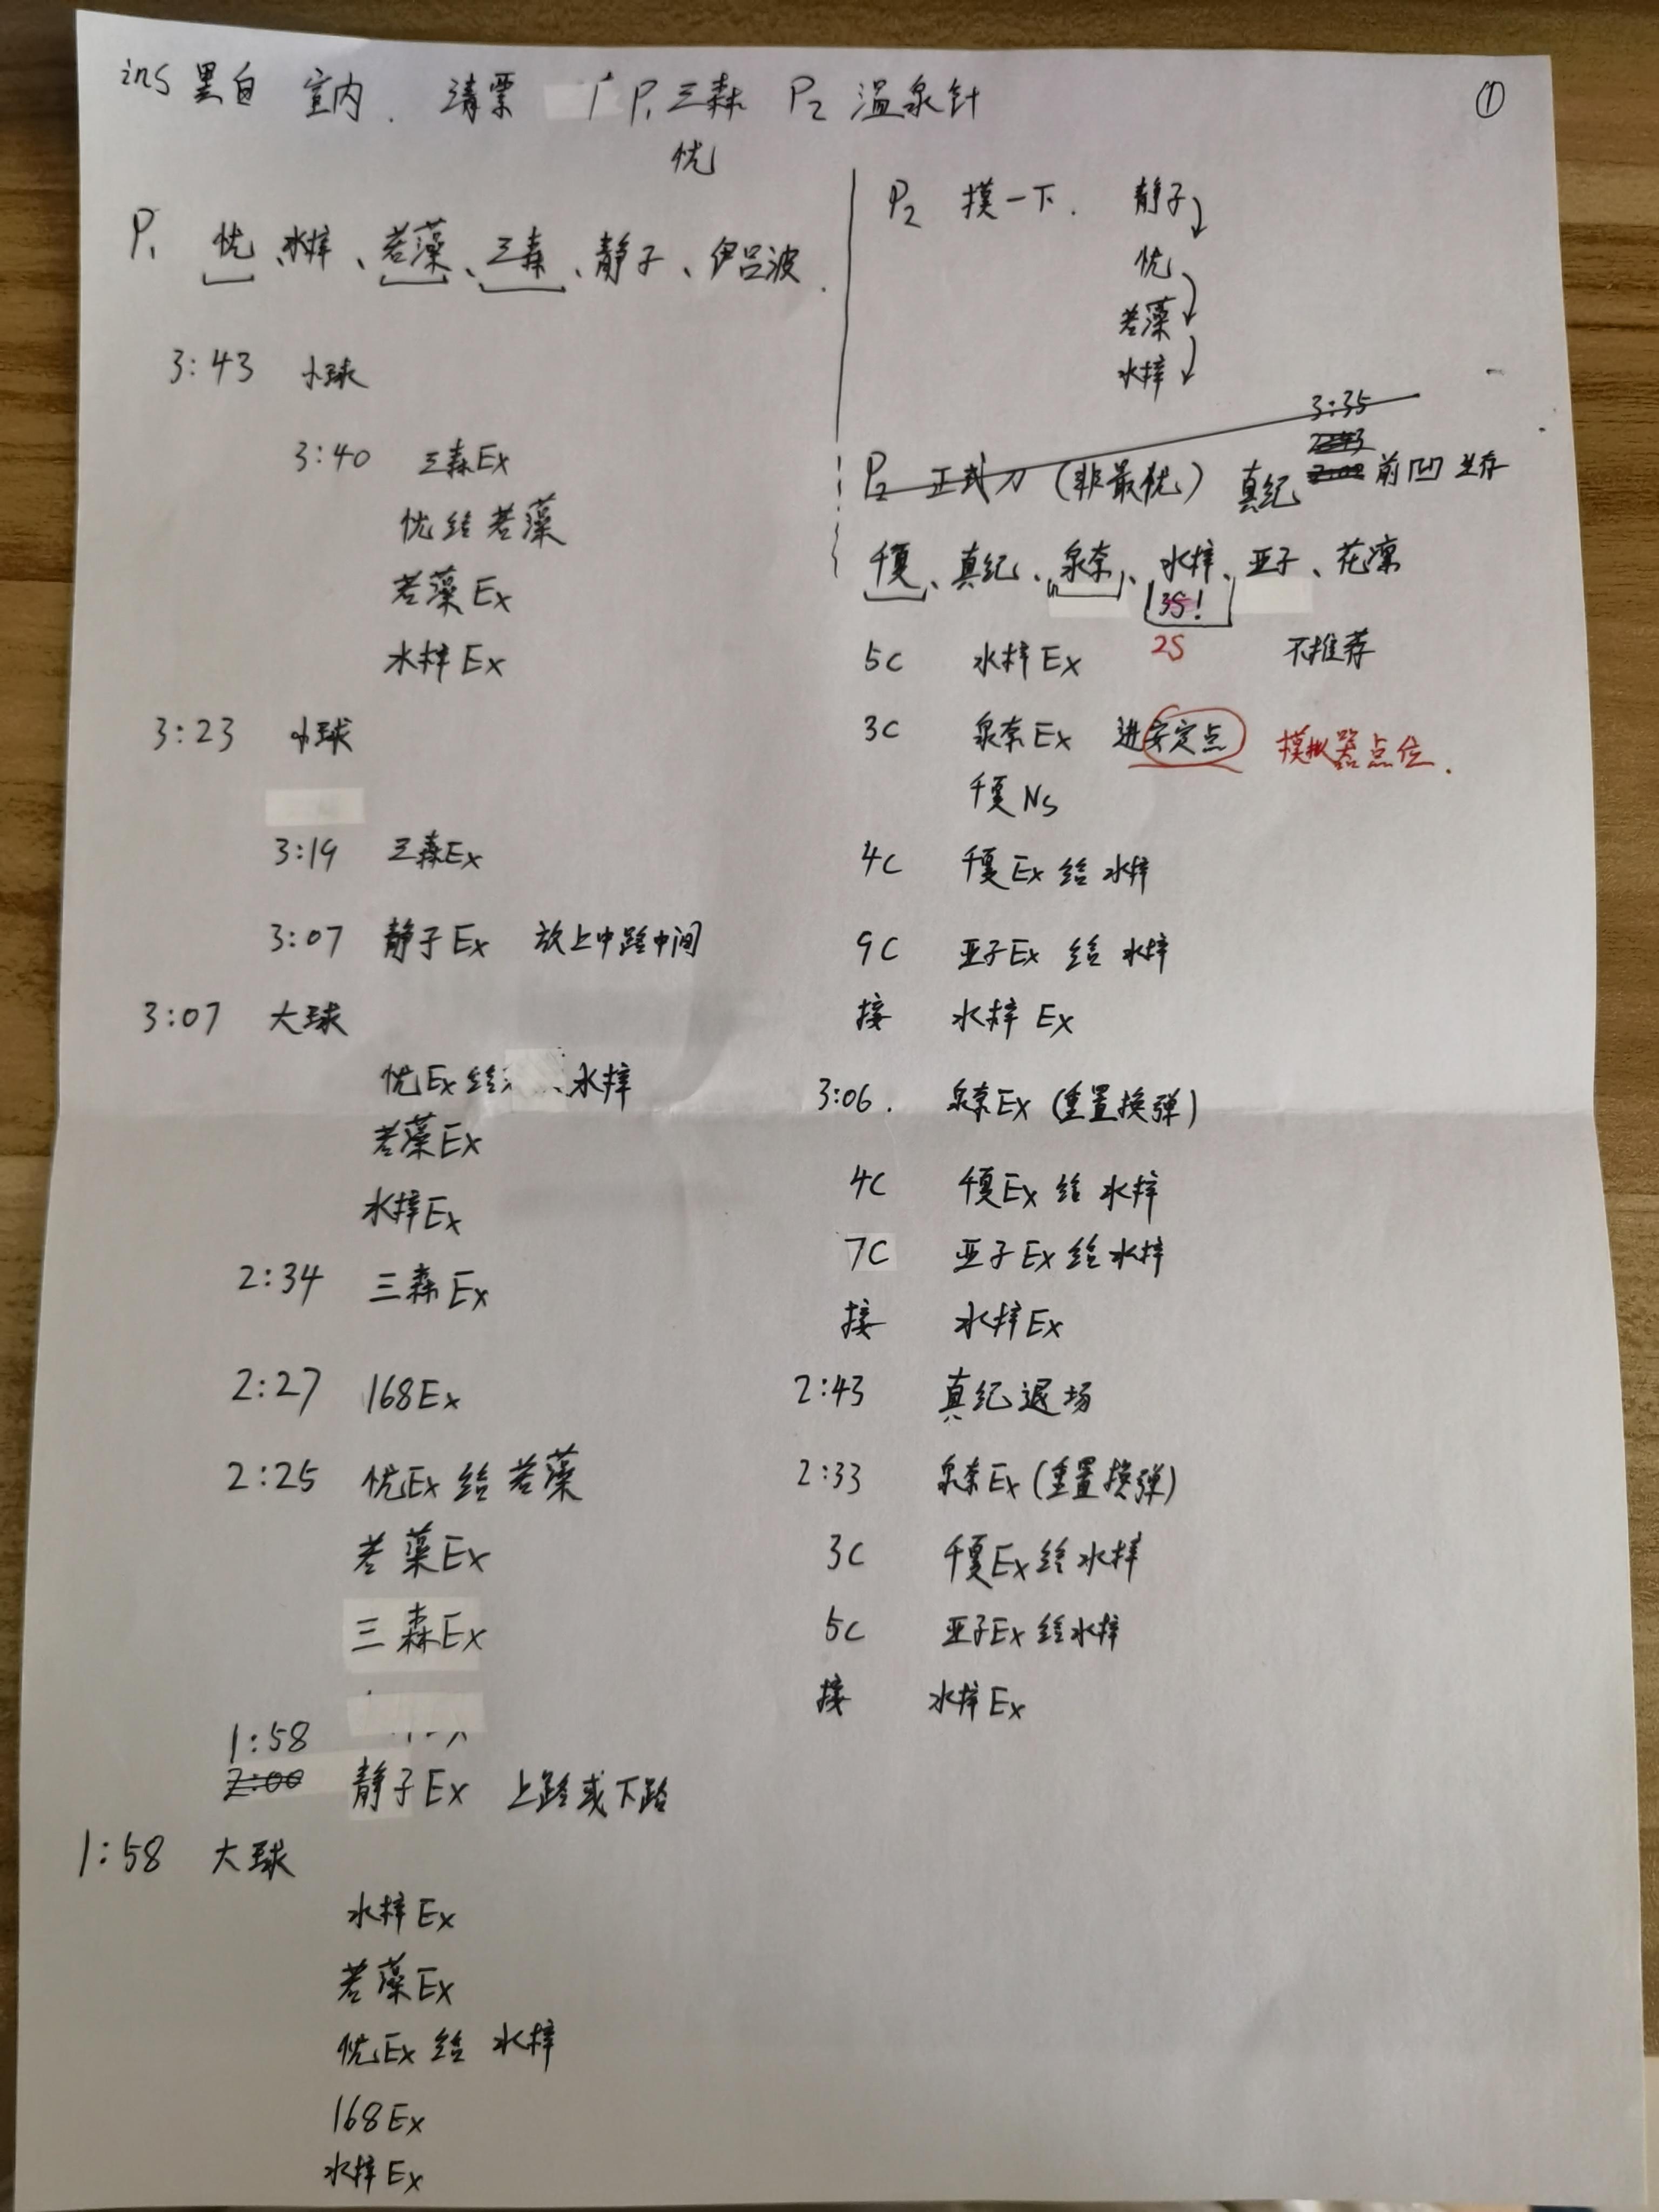 ins 黑白 室内. 清票 P₁三森 P₂ 温泉针
忧
①
P₁ 忧、水梓、若藻、三森、静子、伊吕波.
3:43 小球
3:40 三森Ex
忧给若藻
若藻Ex
水梓Ex
3:23 小球
3:19 三森Ex
3:07 静子Ex 放上中路中间
3:07 大球
忧Ex给 水梓
若藻Ex
水梓Ex
2:34 三森Ex
2:27 168Ex
2:25 忧Ex给若藻
若藻Ex
三森Ex
1:58
2:00 静子Ex 上路或下路
1:58 大球
水梓Ex
若藻Ex
忧Ex给 水梓
168Ex
水梓Ex
P₂ 摸一下. 静子
忧
若藻
水梓
3:35
P₂ 正式刀(非最优) 真纪 前凹生存
千夏、真纪、泉奈、水梓、亚子、花凛
3S!
5C 水梓Ex 2S 不推荐
3C 泉奈Ex 进安定点 模拟器点位.
千夏Ns
4C 千夏Ex给水梓
9C 亚子Ex 给 水梓
接 水梓Ex
3:06. 泉奈Ex(重置换弹)
4C 千夏Ex给水梓
7C 亚子Ex给水梓
接 水梓Ex
2:43 真纪退场
2:33 泉奈Ex(重置换弹)
3C 千夏Ex给水梓
5C 亚子Ex给水梓
接 水梓Ex